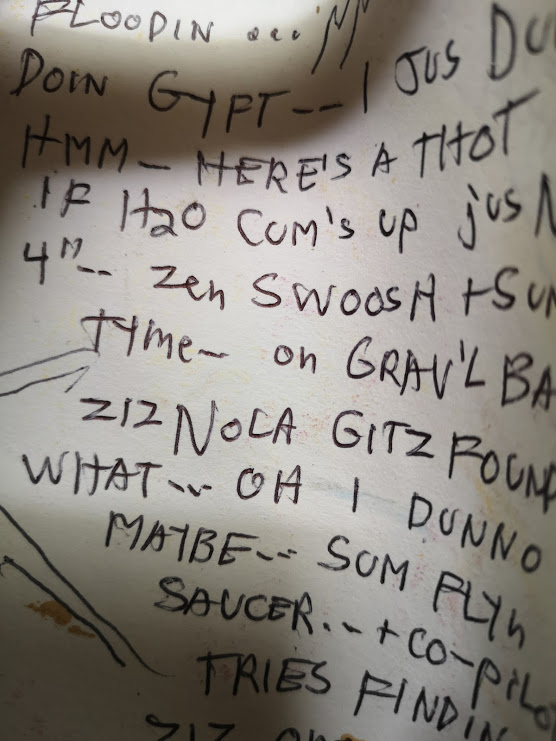 FLOODIN ...
DOIN GYPT -- I JUS DU
HMM - HERE'S A THOT
IF H2O CUM'S UP jUS
4" -- zen SWOOSH + SUN
TYME - on GRAV'L BA
ZIZ NOLA GITZ FOUND
WHAT ... OH I DUNNO
MAYBE -- SUM FLYN
SAUCER .. + CO-PILO
TRIES FINDIN
ZIZ on